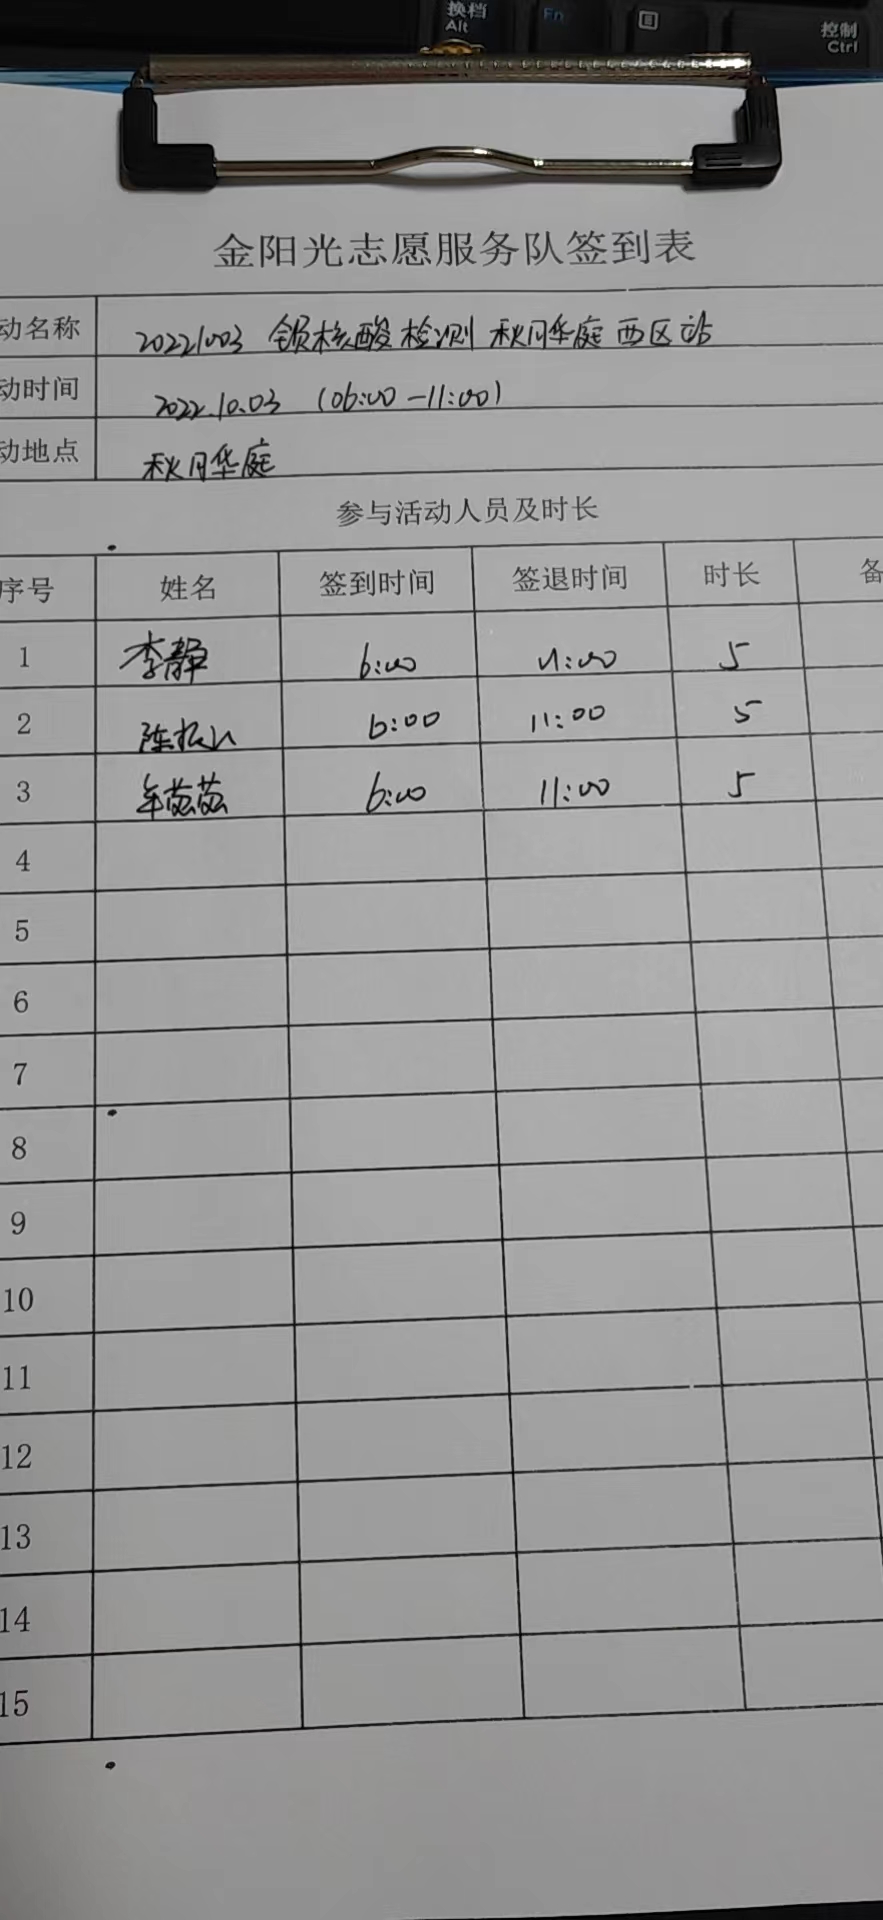 换档
Alt
Fn
控制
Ctrl
金阳光志愿服务队签到表
动名称 20221003 核酸检测 秋月华庭 西区站
动时间 2022.10.03 (06:00-11:00)
动地点 秋月华庭
参与活动人员及时长
序号 姓名 签到时间 签退时间 时长 备
1 李静 6:00 11:00 5
2 6:00 11:00 5
3 6:00 11:00 5
4
5
6
7
8
9
10
11
12
13
14
15